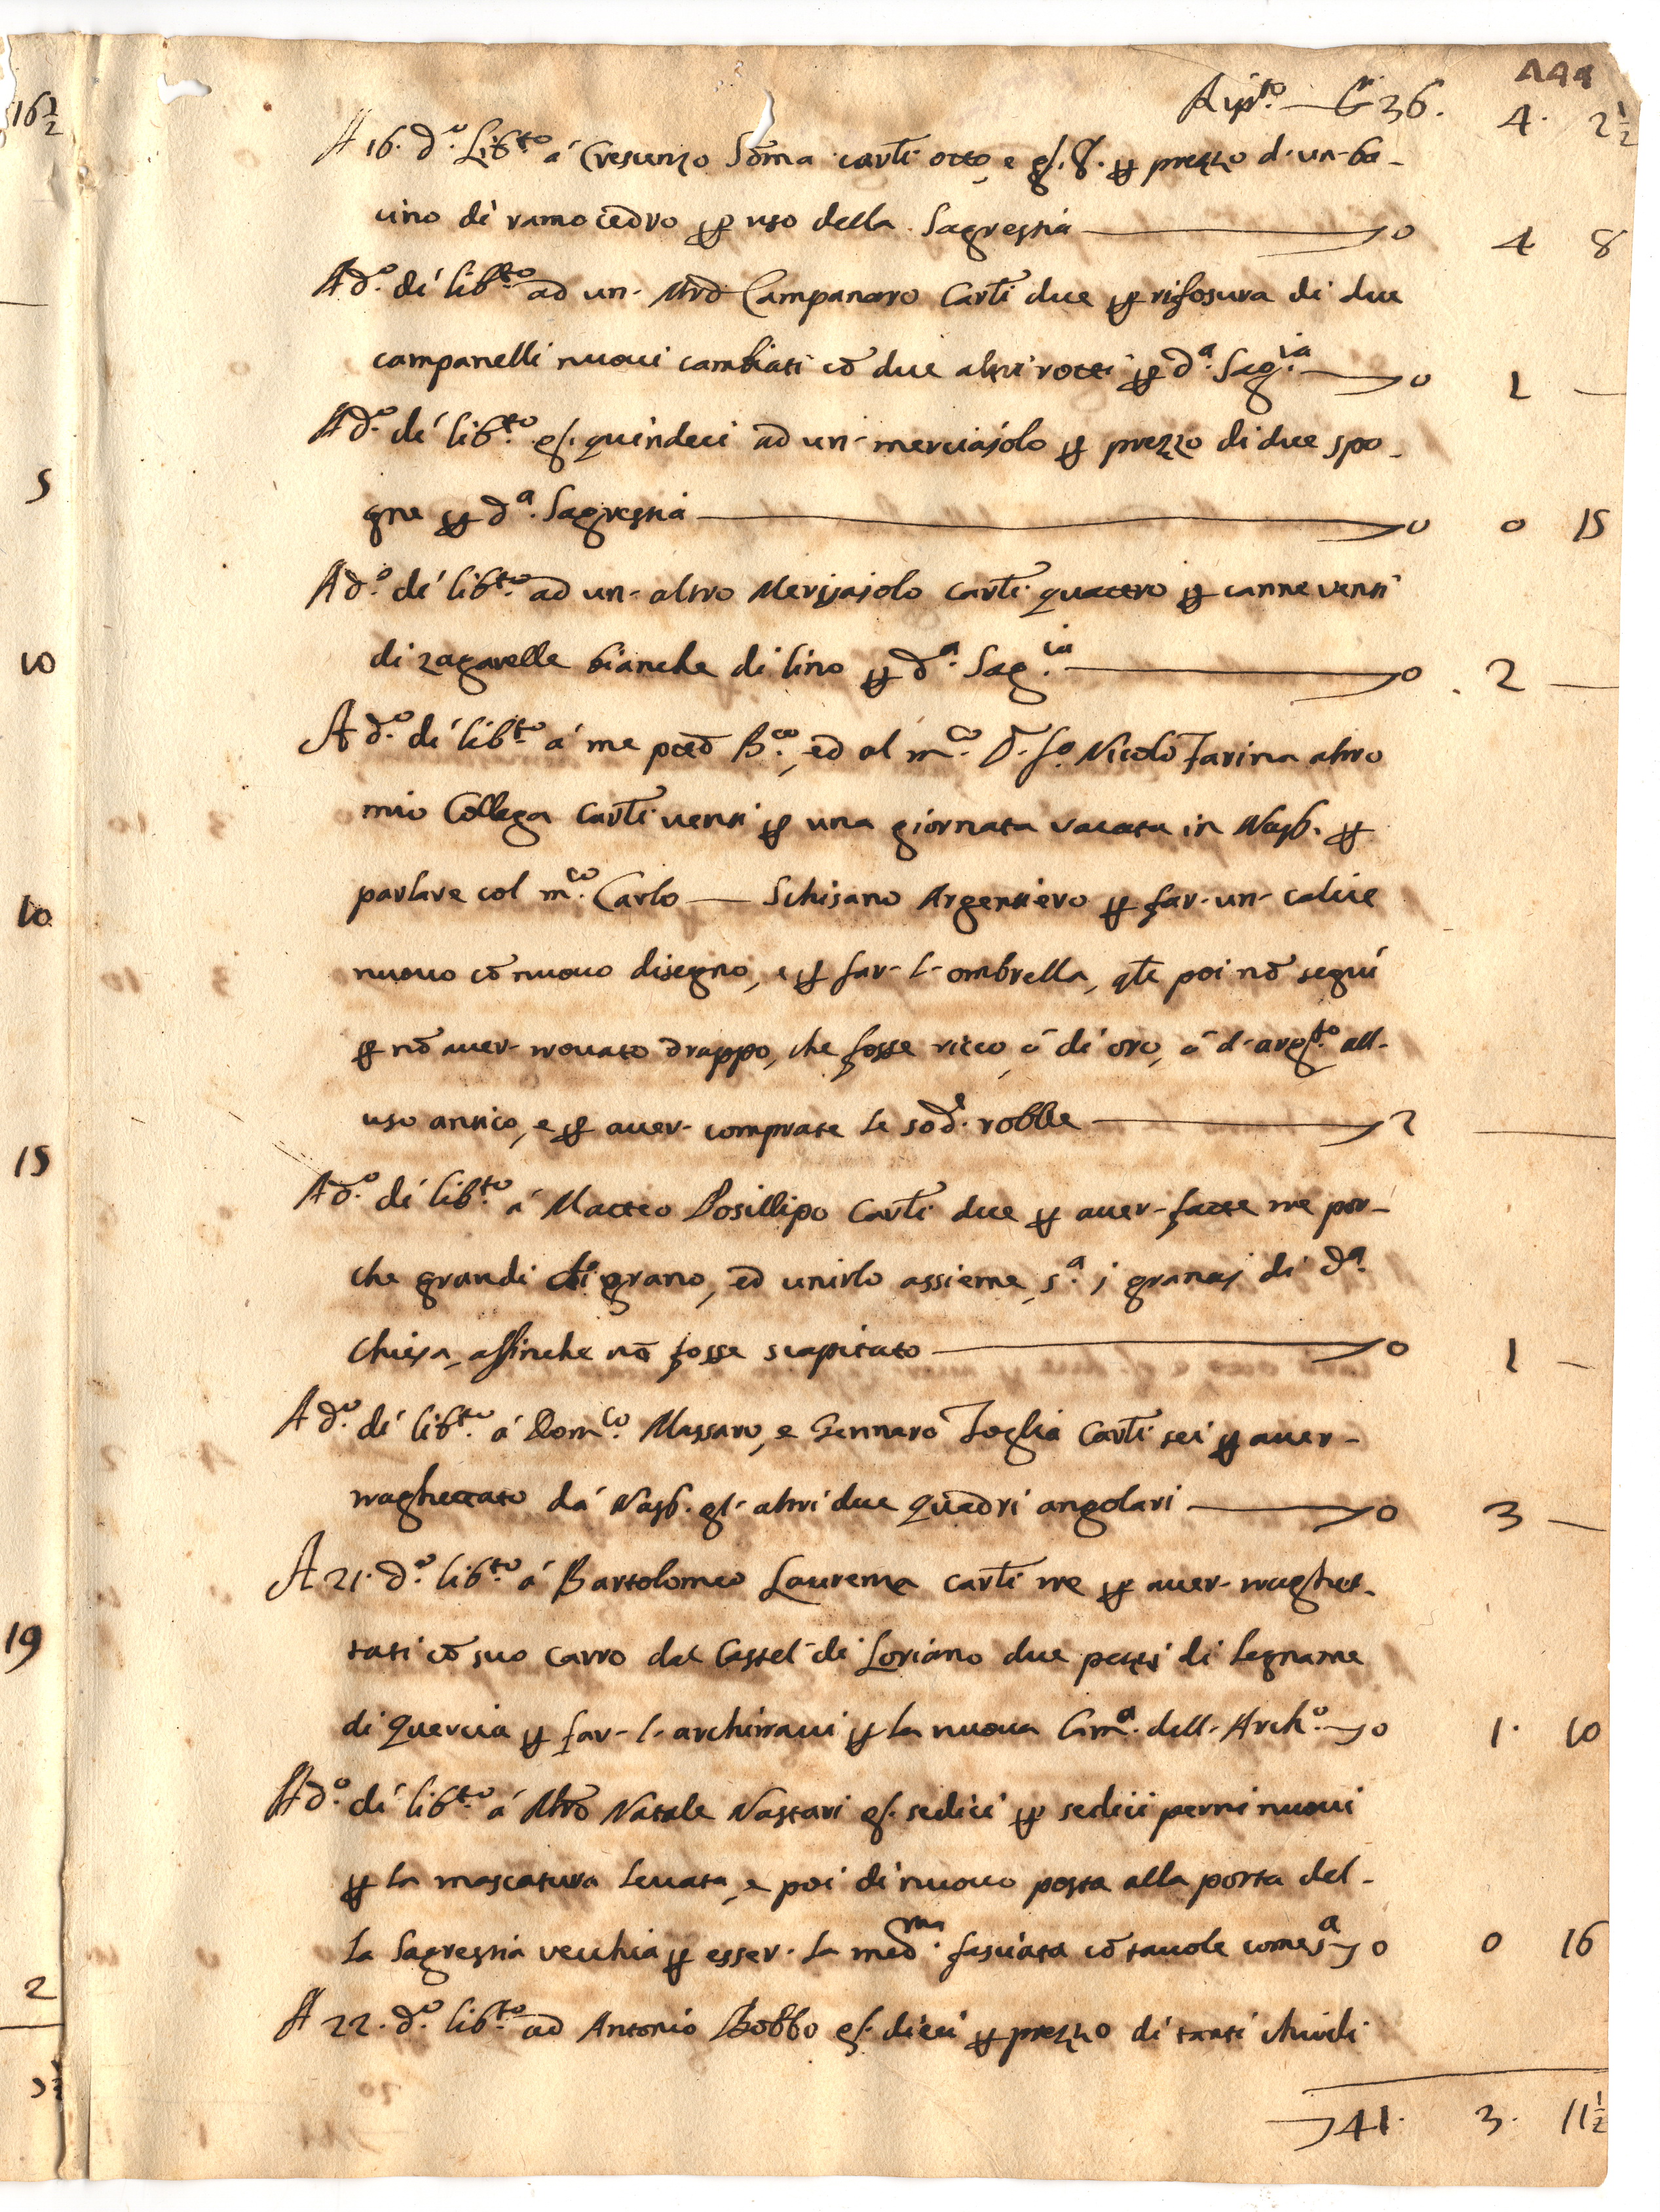 A44
Rip.to — 36. 4. 2½
16½
A 16. d.o Lib.to á Crescenzo Soma carti. otto, e g.s 8. ꝑ prezzo d'un-ba-
cino di ramo cedro ꝑ uso della Sagrestia — 0 4 8
A d.o dí lib.to ad un- Mrõ Campanaro Carti due ꝑ rifosura di due
campanelli nuoui cambiati cõ due altri rotti ꝑ d.a Sag.ia — 0 1 —
A d.o dí lib.to g.s quindeci ad un- merciajolo ꝑ prezzo di due spo-
5
gne ꝑ d.a Sagrestia — 0 0 15
A d.o dí lib.to ad un- altro Merciajolo carti quattro ꝑ canne venti
10
di zagarelle bianche di lino ꝑ d.a Sag.ia — 0 2 —
A d.o dí lib.to á me pred B.co, ed al m.co D.r f.o Nicolò Farina altro
mio Collega carti venti ꝑ una giornata vacata in Nap. ꝑ
10
parlare col m.co Carlo — Schisano Argentiero ꝑ far-un- calice
nuouo cõ nuouo disegno, e ꝑ far-l-ombrella, qte poi nõ seguí
ꝑ nõ auer- trouato drappo, che fosse ricco ó di oro, ó d'arg.to all-
uso antico, e ꝑ auer- comprate le sod.e robbe — 2 —
15
A d.o dí lib.to á Matteo Posillipo Carti due ꝑ auer-fatte tre por-
che grandi di grano, ed unirlo assieme s.a i granai di d.a
Chiesa, affinche nõ fosse scapitato — 0 1 —
A d.o dí lib.to á Dom.co Massaro, e Gennaro Foglia Carti sei ꝑ auer-
traghettato dá Nap. gl- altri due quadri angolari — 0 3 —
A 21. d.o lib.to á Bartolomeo Laurenza carti tre ꝑ auer- traghet-
19
tati cõ suo carro dal Castel-di Loriano due pezzi di legname
di quercia ꝑ far-l-architraui ꝑ la nuoua Cam.a dell-Arch.o — 0 1. 10
A d.o dí lib.to á Mrõ Natale Nastari g.s sedici ꝑ sedici perni nuoui
ꝑ la mascatura leuata, e poi di nuouo posta alla porta del-
la Sagrestia vecchia ꝑ esser- la med.ma fasciata cõ tauole come s.a — 0 0 16
2
A 22. d.o lib.to ad Antonio Bobbo g.s dieci ꝑ prezzo di tanti chiodi
41. 3. 11½